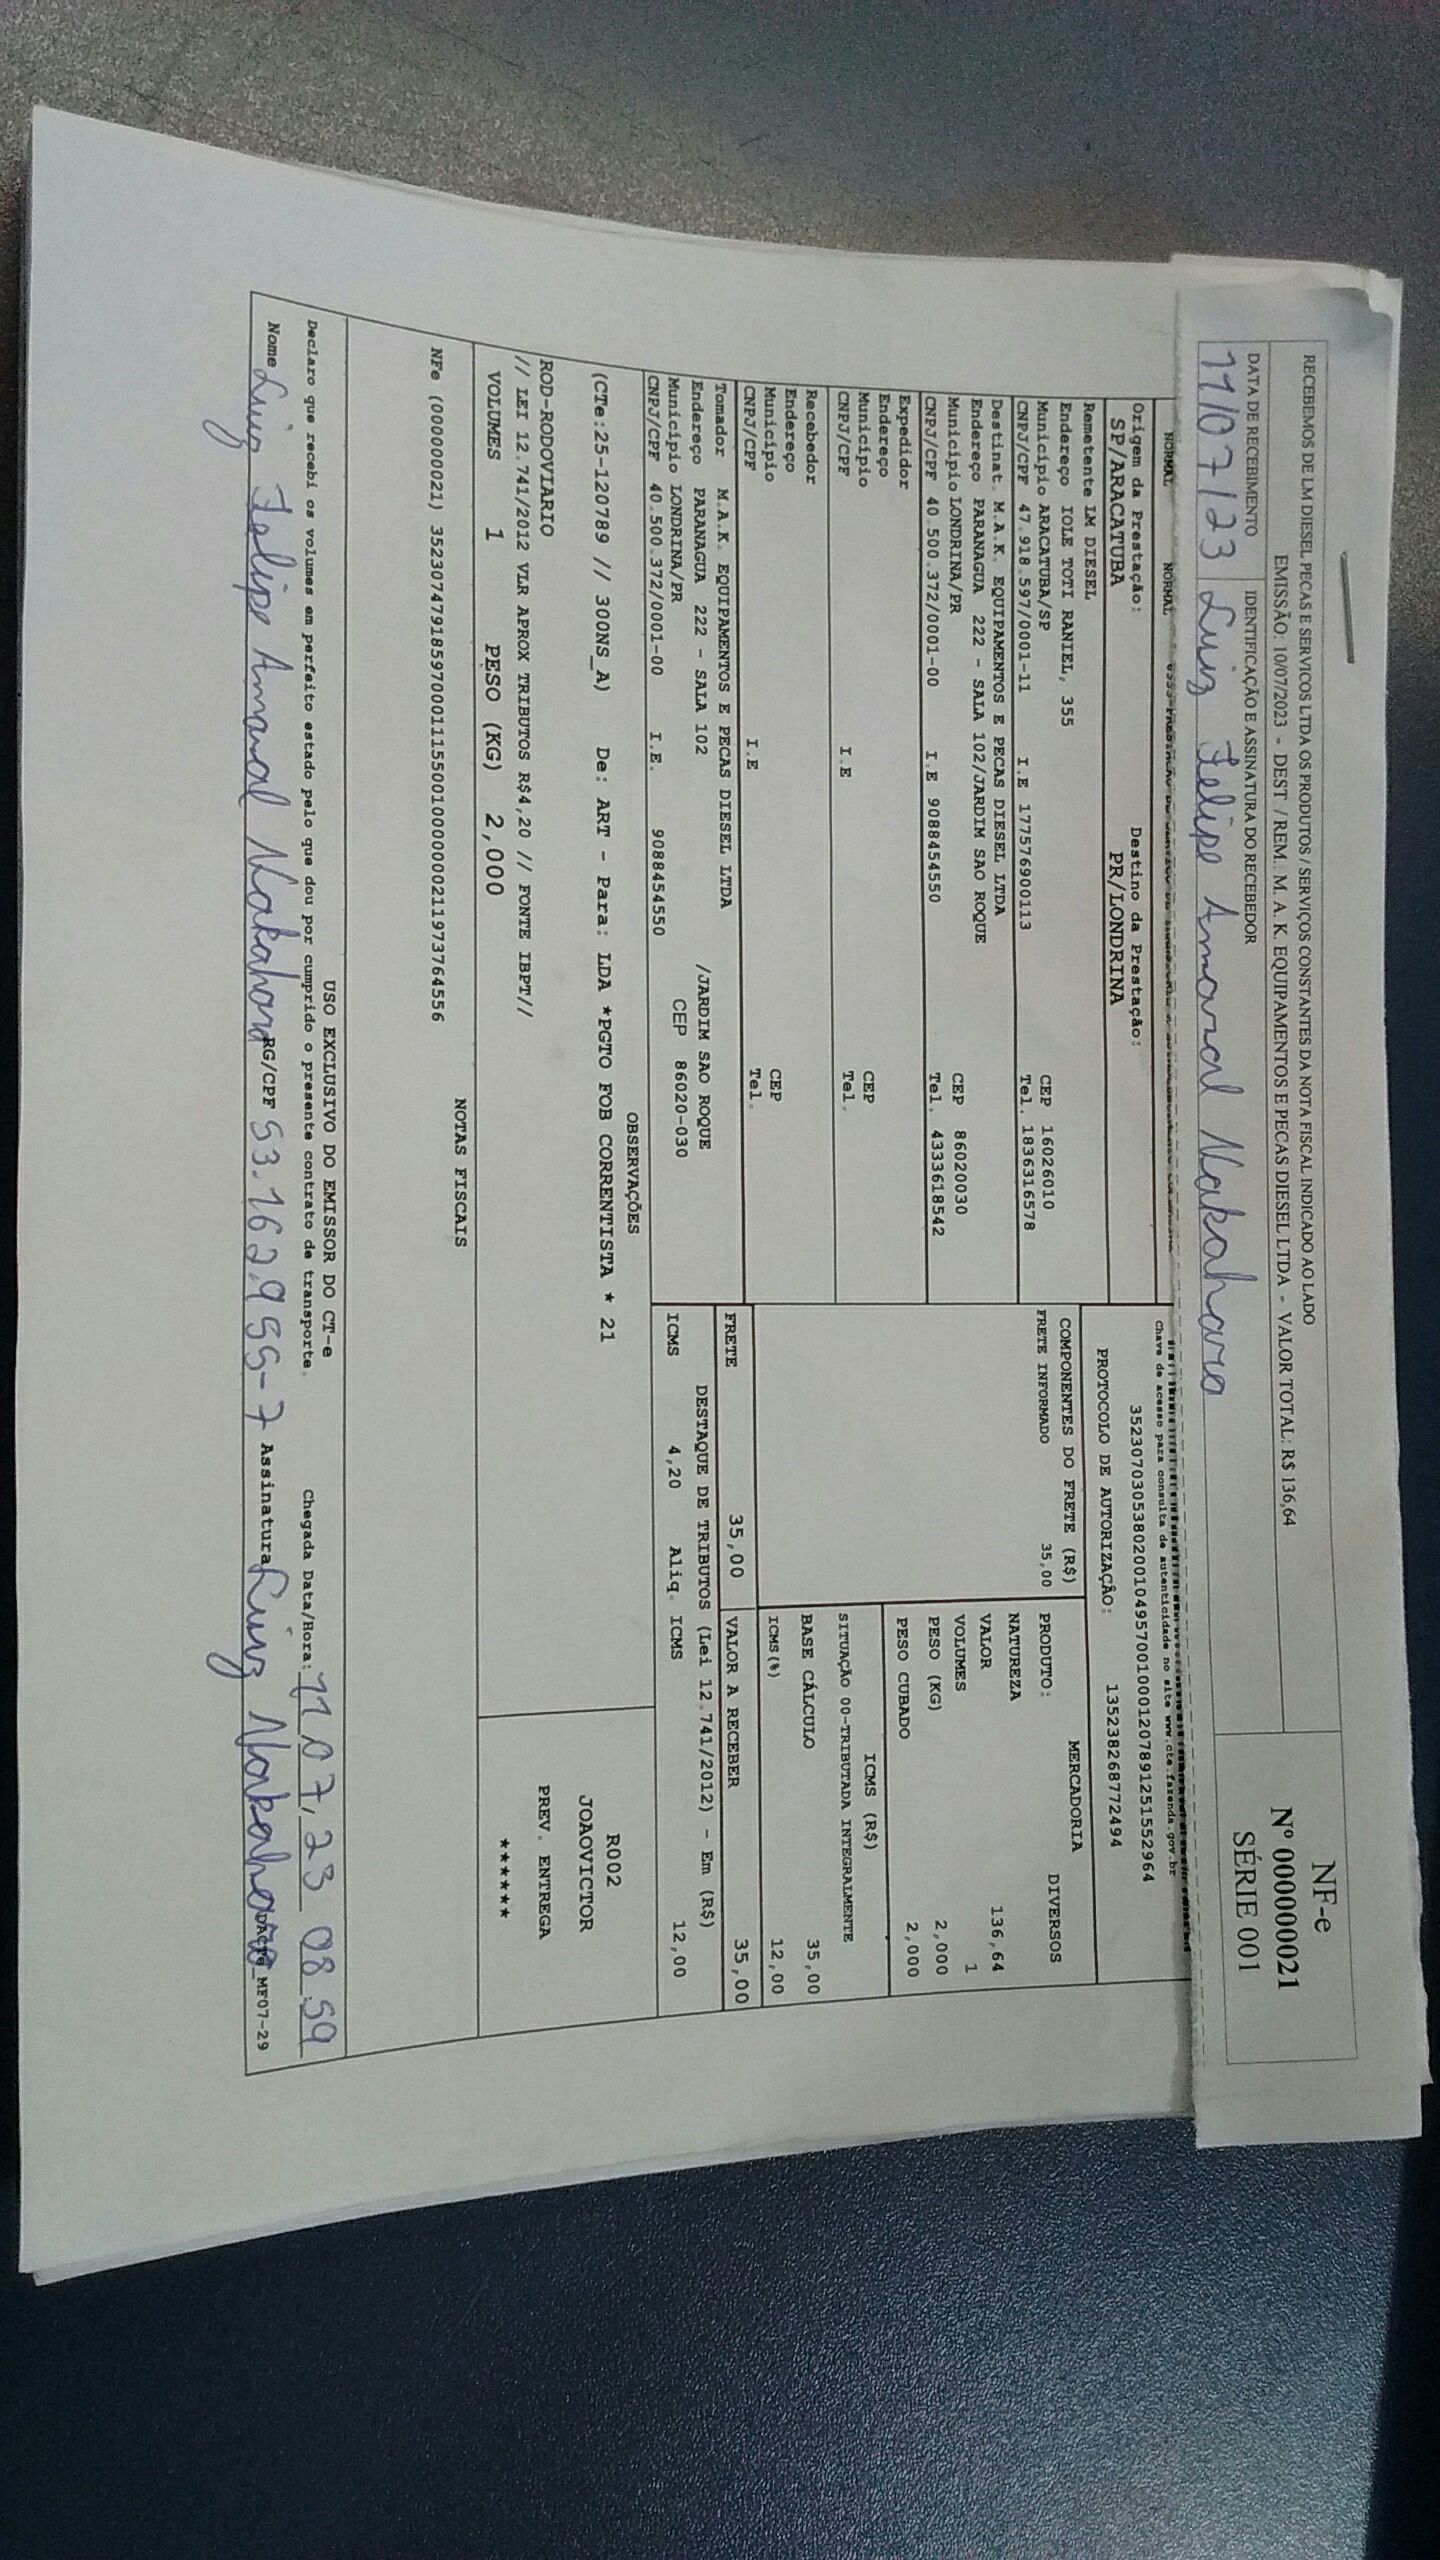 RECEBEMOS DE LM DIESEL PECAS E SERVICOS LTDA OS PRODUTOS / SERVIÇOS CONSTANTES DA NOTA FISCAL INDICADO AO LADO
EMISSÃO: 10/07/2023 - DEST. / REM.: M. A. K. EQUIPAMENTOS E PECAS DIESEL LTDA - VALOR TOTAL: R$ 136,64
DATA DE RECEBIMENTO
IDENTIFICAÇÃO E ASSINATURA DO RECEBEDOR
11/07/23
Luiz Felipe Amaral Nakahara
NF-e
Nº 000000021
SÉRIE 001
NORMAL
NORMAL
Chave de acesso para consulta de autenticidade no site www.cte.fazenda.gov.br
35230703053802001049570010001207891251552964
Origem da Prestação:
SP/ARACATUBA
Destino da Prestação:
PR/LONDRINA
PROTOCOLO DE AUTORIZAÇÃO:
135238268772494
Remetente LM DIESEL
Endereço IOLE TOTI RANIEL, 355
Município ARACATUBA/SP CEP 16026010
CNPJ/CPF 47.918.597/0001-11 I.E 177576900113 Tel. 1836316578
Destinat. M.A.K. EQUIPAMENTOS E PECAS DIESEL LTDA
Endereço PARANAGUA 222 - SALA 102/JARDIM SAO ROQUE
Município LONDRINA/PR CEP 86020030
CNPJ/CPF 40.500.372/0001-00 I.E 9088454550 Tel. 4333618542
Expedidor
Endereço
Município CEP
CNPJ/CPF I.E Tel.
Recebedor
Endereço
Município CEP
CNPJ/CPF I.E Tel.
Tomador M.A.K. EQUIPAMENTOS E PECAS DIESEL LTDA
Endereço PARANAGUA 222 - SALA 102 /JARDIM SAO ROQUE
Município LONDRINA/PR CEP 86020-030
CNPJ/CPF 40.500.372/0001-00 I.E. 9088454550
COMPONENTES DO FRETE (R$)
FRETE INFORMADO 35,00
MERCADORIA
PRODUTO: DIVERSOS
NATUREZA
VALOR 136,64
VOLUMES 1
PESO (KG) 2,000
PESO CUBADO 2,000
ICMS (R$)
SITUAÇÃO 00-TRIBUTADA INTEGRALMENTE
BASE CÁLCULO 35,00
ICMS(%) 12,00
FRETE 35,00
VALOR A RECEBER 35,00
DESTAQUE DE TRIBUTOS (Lei 12.741/2012) - Em (R$)
ICMS 4,20 Aliq. ICMS 12,00
OBSERVAÇÕES
(CTe:25-120789 // 300NS_A) De: ART - Para: LDA *PGTO FOB CORRENTISTA * 21
ROD-RODOVIARIO
// LEI 12.741/2012 VLR APROX TRIBUTOS R$4,20 // FONTE IBPT//
VOLUMES 1 PESO (KG) 2,000
R002
JOAOVICTOR
PREV. ENTREGA
******
NOTAS FISCAIS
NFe (000000021) 35230747918597000111550010000000211973764556
USO EXCLUSIVO DO EMISSOR DO CT-e
Declaro que recebi os volumes em perfeito estado pelo que dou por cumprido o presente contrato de transporte. Chegada Data/Hora: 11/07/23 08:59
Nome Luiz Felipe Amaral Nakahara RG/CPF 53.162.955-7 Assinatura Luiz Nakahara
MF07-29